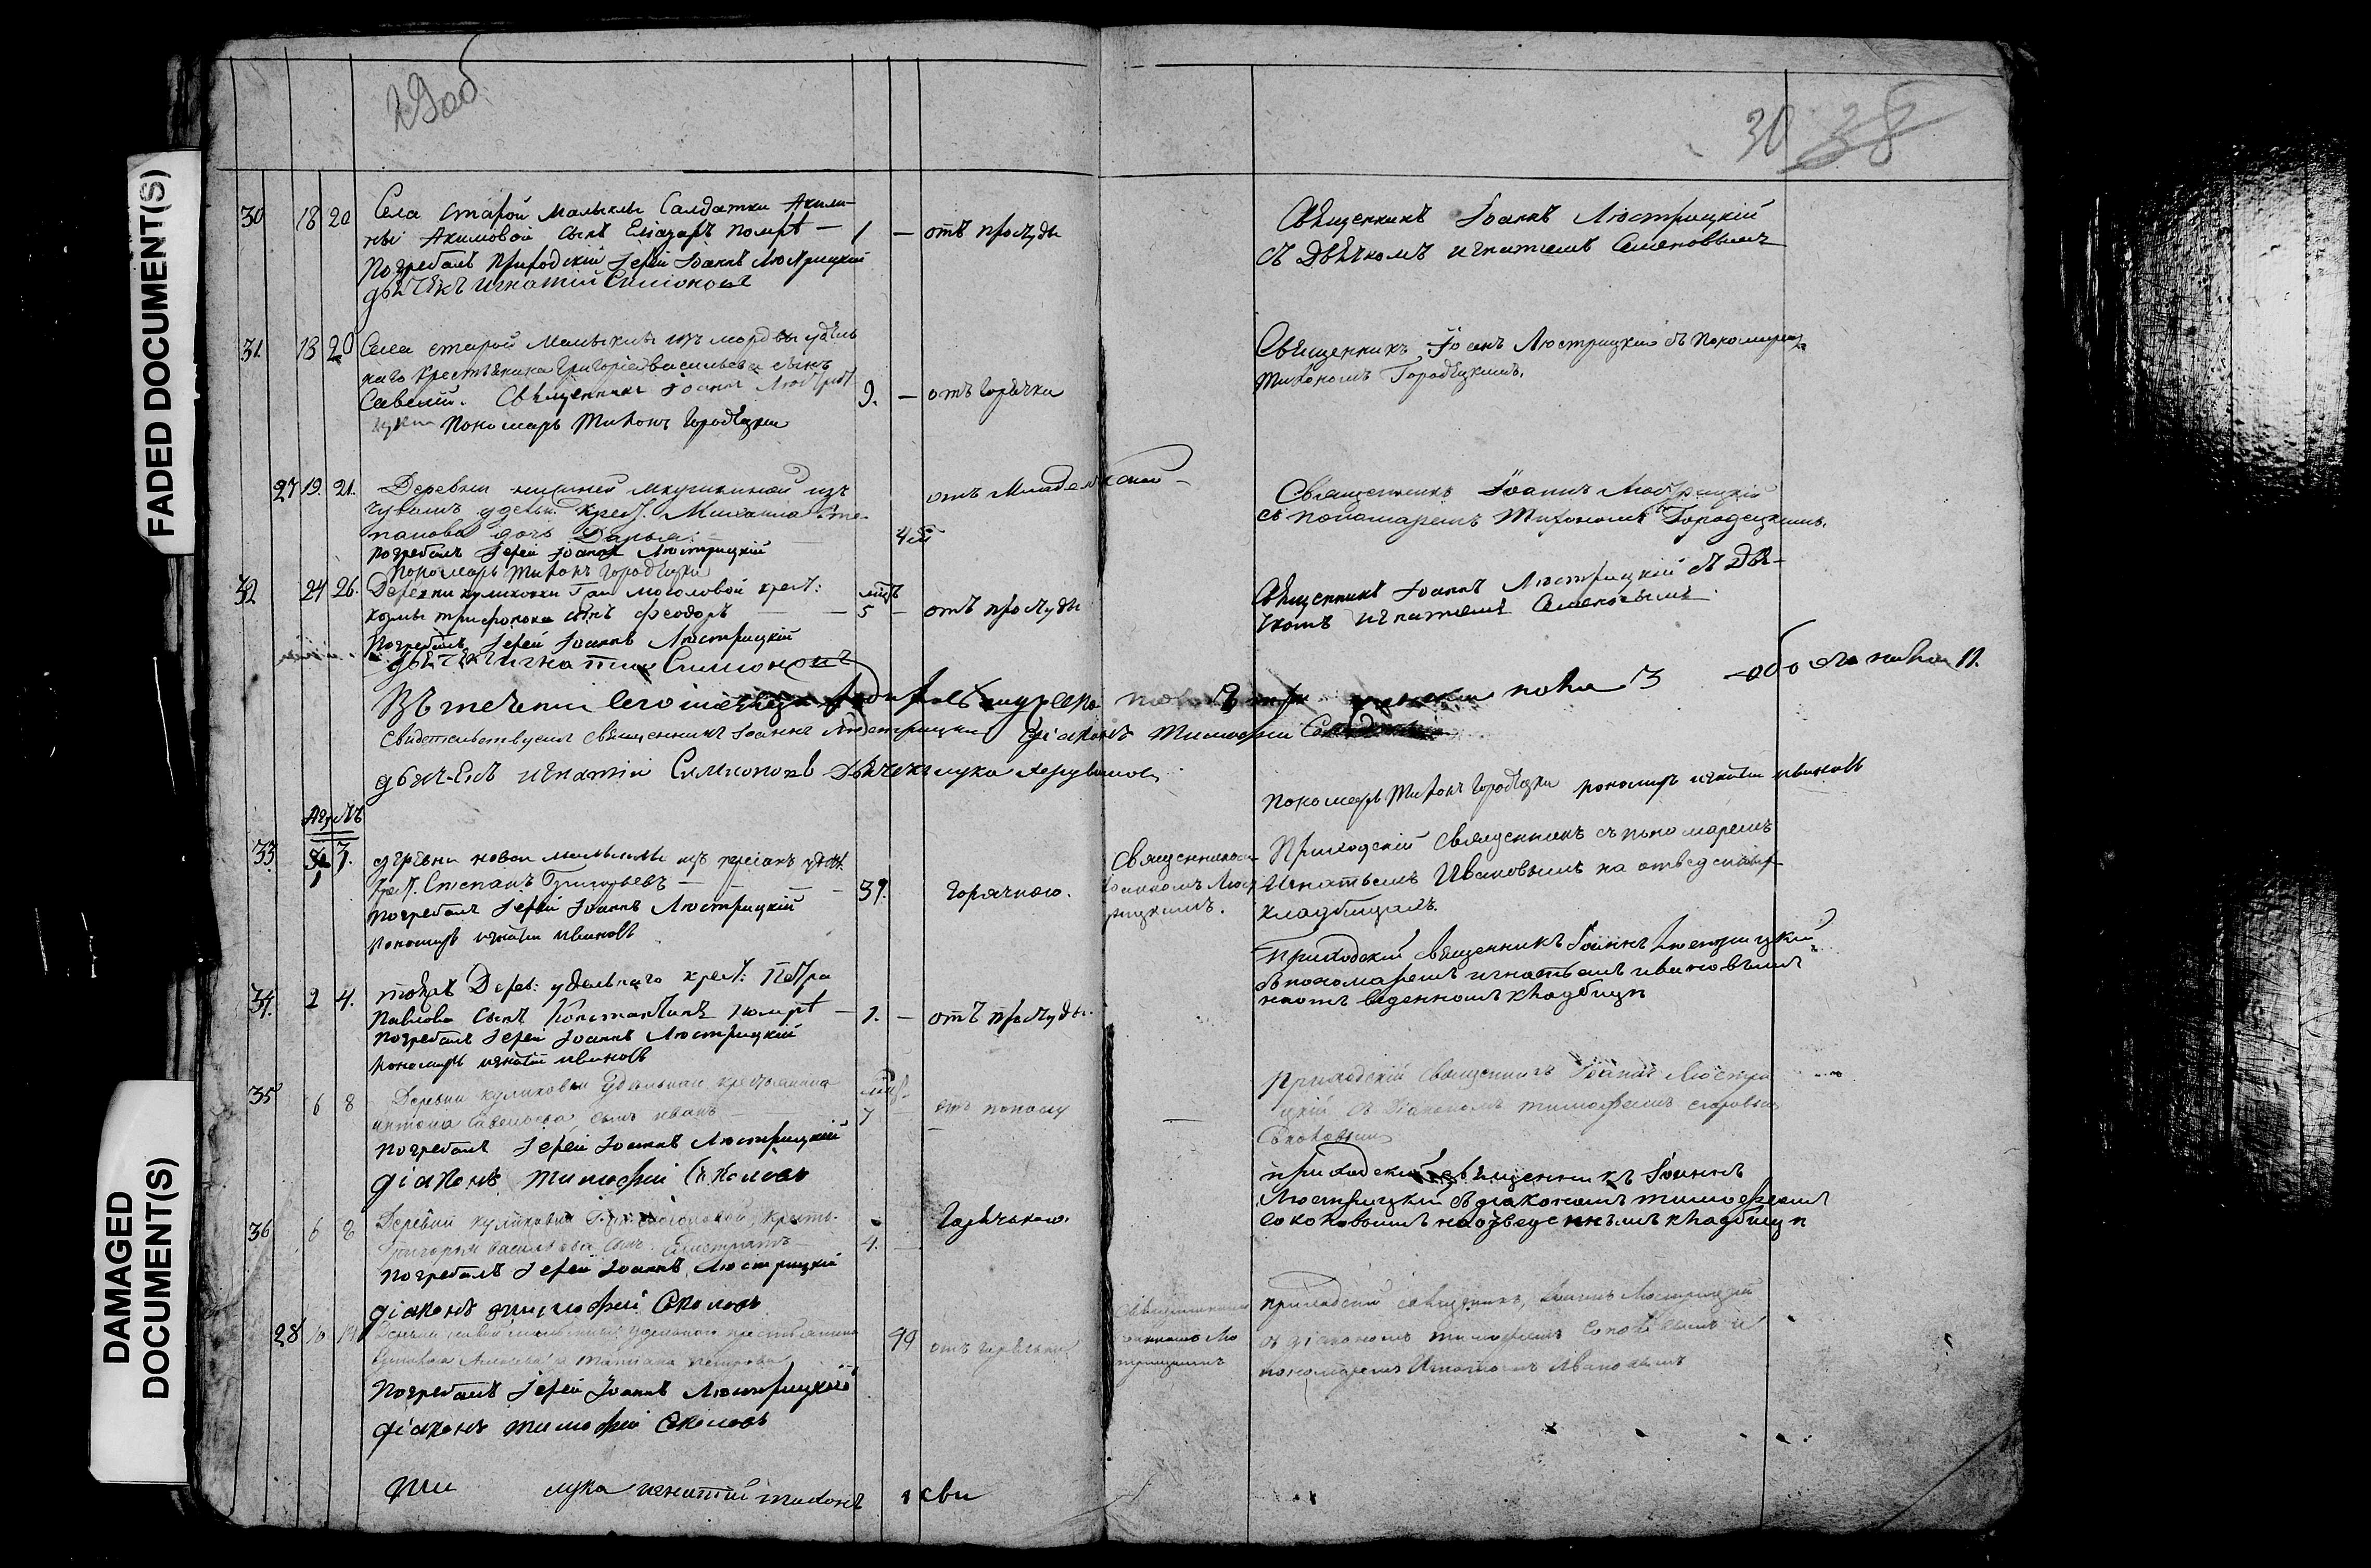 29 об
30 38
FADED DOCUMENT(S)
DAMAGED DOCUMENT(S)
30 18 20 Села старой Малыклы Салдатки Акили-
ны Акимовой сынъ Елiазаръ помрѣ — 1 — отъ простуды
Погребалъ Приходскiй Iерей Iоаннъ Люстрицкiй
дьячекъ Игнатiй Симоновъ
Священникъ Iоаннъ Люстрицкiй
съ Дьячкомъ Игнатiемъ Семеновымъ
31. 18 20 Села старой Малыклы изъ мордвы удѣль
наго крестьянина Григорiя Васильева сынъ
Савелiй. Священникъ Iоаннъ Люстри 9. — отъ горячки
цкiй Пономарь Тихонъ Городецкiй
Священникъ Iоанъ Люстрицкiй съ пономаремъ
Тихономъ Городецкимъ.
27 19. 21. Деревни нижней Якушкиной изъ отъ Младенской
чувашъ удельн. крест. Михаила Сте-
панова дочь Дарья. 4
Погребалъ Iерей Iоаннъ Люстрицкiй
Пономарь Тихонъ Городецкiй
Священникъ Iоаннъ Люстрицкiй
съ пономаремъ Тихономъ Городецкимъ.
32 24 26. Деревни Куликовки Гра Моголовой крест:
Козмы Трифонова сынъ Феодоръ — 5 — отъ простуды
Погребалъ Iерей Iоаннъ Люстрицкiй
дьячекъ Игнатiй Симоновъ
Священникъ Iоаннъ Люстрицкiй съ Дья-
чкомъ Игнатiемъ Семеновымъ
Въ теченiи сего месяца мужеска пола женска пола 3 обоего пола 11.
Свидетельствуемъ Священникъ Iоаннъ Люстрицкiй Дiаконъ Тимофей
дьячекъ Игнатiй Симионовъ Дьячекъ Лука
Пономарь Тихонъ Городецкiй пономарь Игнатiй Ивановъ
33. 1 3. деревни новой малыклы удѣл.
крест. Степанъ Григорьевъ — 39. Горячкою.
Погребалъ Iерей Iоаннъ Люстрицкiй
Пономарь Игнатiй Ивановъ
Священникомъ
Iоанномъ Люст
рицкимъ.
Приходскiй священникъ съ пономаремъ
Игнатьемъ Ивановымъ на отведенномъ
кладбищахъ.
34. 2 4. тойже Дерев: удѣльнаго крест: Петра
Павлова сынъ Константинъ помрѣ — 1. — отъ простуды.
Погребалъ Iерей Iоаннъ Люстрицкiй
пономарь Игнатiй Ивановъ
Приходскiй Священникъ Iоаннъ Люстрицкiй
съ пономаремъ Игнатьемъ Ивановымъ
на отведенномъ кладбищи
35 6 8 Деревни Куликовки Удѣльнаго крестьянина
Антона Савельева сынъ Иванъ 7 — отъ поносу
Погребалъ Iерей Iоаннъ Люстрицкiй
дiаконъ Тимофей Соколовъ
Приходскiй священникъ Iоаннъ Люстри
цкiй съ дiакономъ Тимофеемъ
Соколовым
36 6 8 Деревни Куликовки крестья-
Григорья Васильева сынъ 4. — Горячькою.
Погребалъ Iерей Iоаннъ Люстрицкiй
дiаконъ Тимофей Соколовъ
приходскiй священникъ Iоаннъ
Люстрицкiй съ дiакономъ Тимофеемъ
Соколовымъ на отведеннымъ кладбищи
28 10 Деревни новой удельнаго крестьянина
Татiана Петрова 49 отъ горячки
Погребалъ Iерей Iоаннъ Люстрицкiй
дiаконъ Тимофей Соколовъ
Священникомъ
Iоанномъ Лю
стрицкимъ
приходскiй священникъ, Iоаннъ Люстрицкiй
съ дiакономъ Тимофеемъ Соколовымъ и
пономаремъ Игнатiемъ Ивановымъ
Ти лука игнатiй тихонъ сви